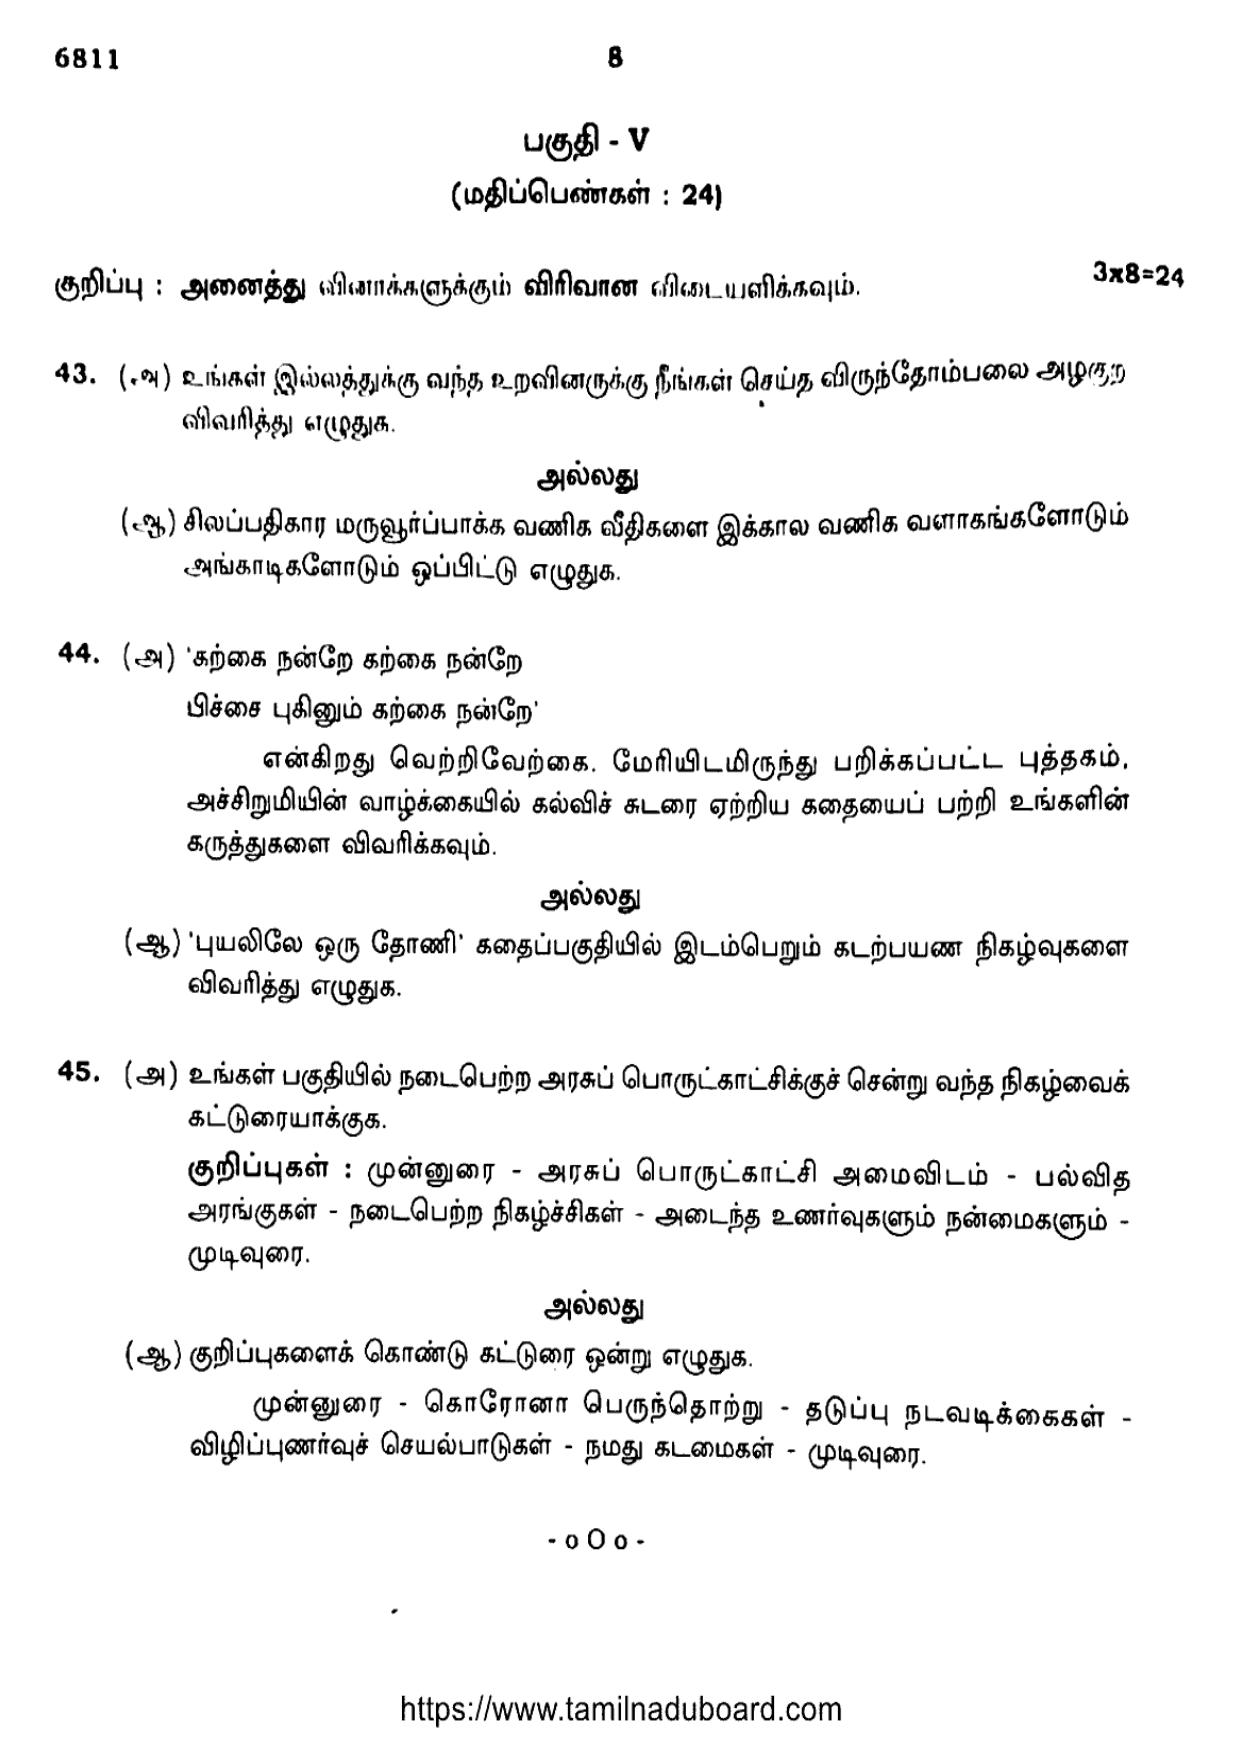 6811
8
பகுதி - V
(மதிப்பெண்கள் : 24)
குறிப்பு : அனைத்து வினாக்களுக்கும் விரிவான விடையளிக்கவும்.
3x8=24
43. (அ) உங்கள் இல்லத்துக்கு வந்த உறவினருக்கு நீங்கள் செய்த விருந்தோம்பலை அழகுற
விவரித்து எழுதுக.
அல்லது
(ஆ) சிலப்பதிகார மருவூர்ப்பாக்க வணிக வீதிகளை இக்கால வணிக வளாகங்களோடும்
அங்காடிகளோடும் ஒப்பிட்டு எழுதுக.
44. (அ) 'கற்கை நன்றே கற்கை நன்றே
பிச்சை புகினும் கற்கை நன்றே'
என்கிறது வெற்றிவேற்கை. மேரியிடமிருந்து பறிக்கப்பட்ட புத்தகம்,
அச்சிறுமியின் வாழ்க்கையில் கல்விச் சுடரை ஏற்றிய கதையைப் பற்றி உங்களின்
கருத்துகளை விவரிக்கவும்.
அல்லது
(ஆ) 'புயலிலே ஒரு தோணி' கதைப்பகுதியில் இடம்பெறும் கடற்பயண நிகழ்வுகளை
விவரித்து எழுதுக.
45. (அ) உங்கள் பகுதியில் நடைபெற்ற அரசுப் பொருட்காட்சிக்குச் சென்று வந்த நிகழ்வைக்
கட்டுரையாக்குக.
குறிப்புகள் : முன்னுரை - அரசுப் பொருட்காட்சி அமைவிடம் - பல்வித
அரங்குகள் - நடைபெற்ற நிகழ்ச்சிகள் - அடைந்த உணர்வுகளும் நன்மைகளும் -
முடிவுரை.
அல்லது
(ஆ) குறிப்புகளைக் கொண்டு கட்டுரை ஒன்று எழுதுக.
முன்னுரை - கொரோனா பெருந்தொற்று - தடுப்பு நடவடிக்கைகள் -
விழிப்புணர்வுச் செயல்பாடுகள் - நமது கடமைகள் - முடிவுரை.
- o O o -
https://www.tamilnaduboard.com